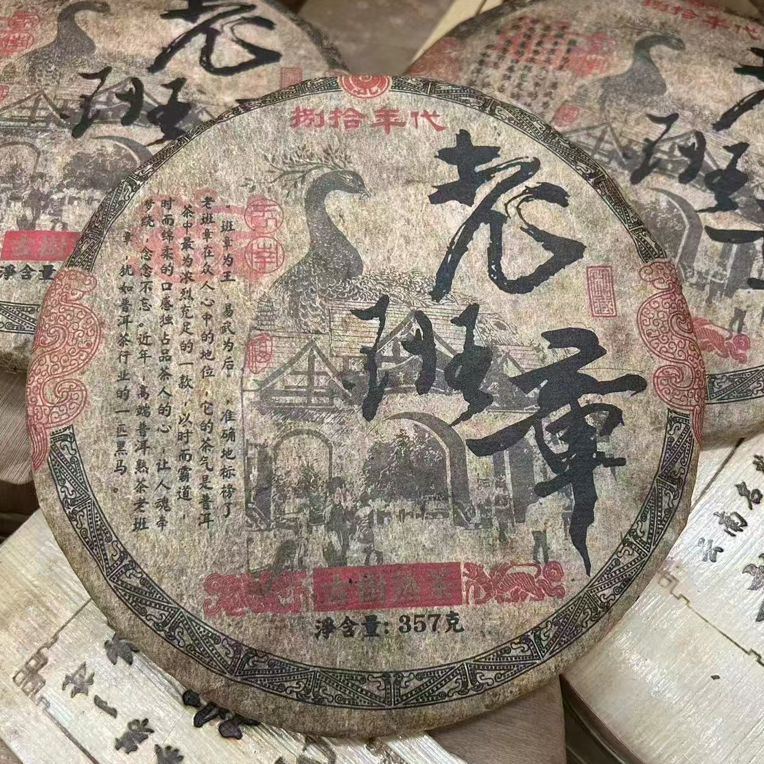 捌拾年代
老班章
“班章为王，易武为后”，准确地标榜了
老班章在众人心中的地位，它的茶气是普洱
茶中最为浓烈充足的一款，以时而霸道，
时而绵柔的口感独占品茶人的心，让人魂牵
梦绕，念念不忘。近年，高端普洱熟茶老班
章，犹如普洱茶行业的一匹黑马。
古树熟茶
淨含量: 357克
老
班
淨含量
捌拾年代
云南名